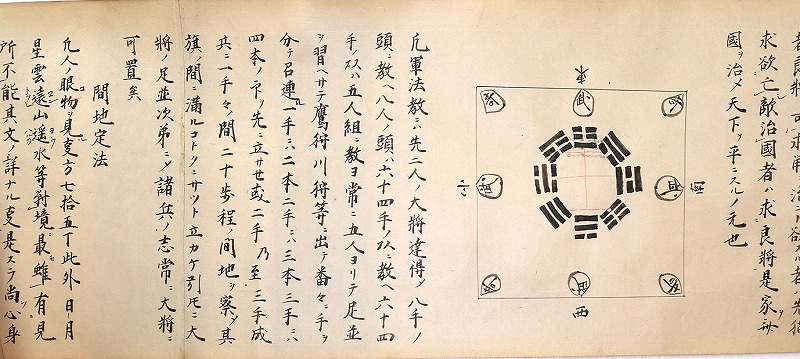 求欲亡敵治國者ハ求良將是家ヲ
國ヲ治メ天下ヲ平ニスルノ元也
東
南
北
西
凡軍法教ニハ先二人ノ大將達得シ八手ノ
頭ニ教ヘ八人ノ頭ハ六十四手ノ教ヘ六十四
手ノハ五人組ニ教ヨ常ニ五人ヨリテ足並
ヲ習ヘサテ鷹狩川狩等ニ出テ番々ニ手ヲ
分テ召連一手ニハ二本二手ニハ三本三手ニハ
四本ノヲ先ニ立サせ或二手乃至三手成
共ニ一手々ノ間二十歩程ノ間地ヲ察シ其
旗ノ間ニ滿ルコトクニサツト立カケ引ニ大
將ノ足並次第ニシ諸兵ノ志常ニ大將ニ
可置矣
間地定法
凡人ノ眼物ヲ見支方七拾五丁此外日月
星雲遠山遥水等對境最雖有見
所不能其文ノ詳ナル支是スラ尚心身